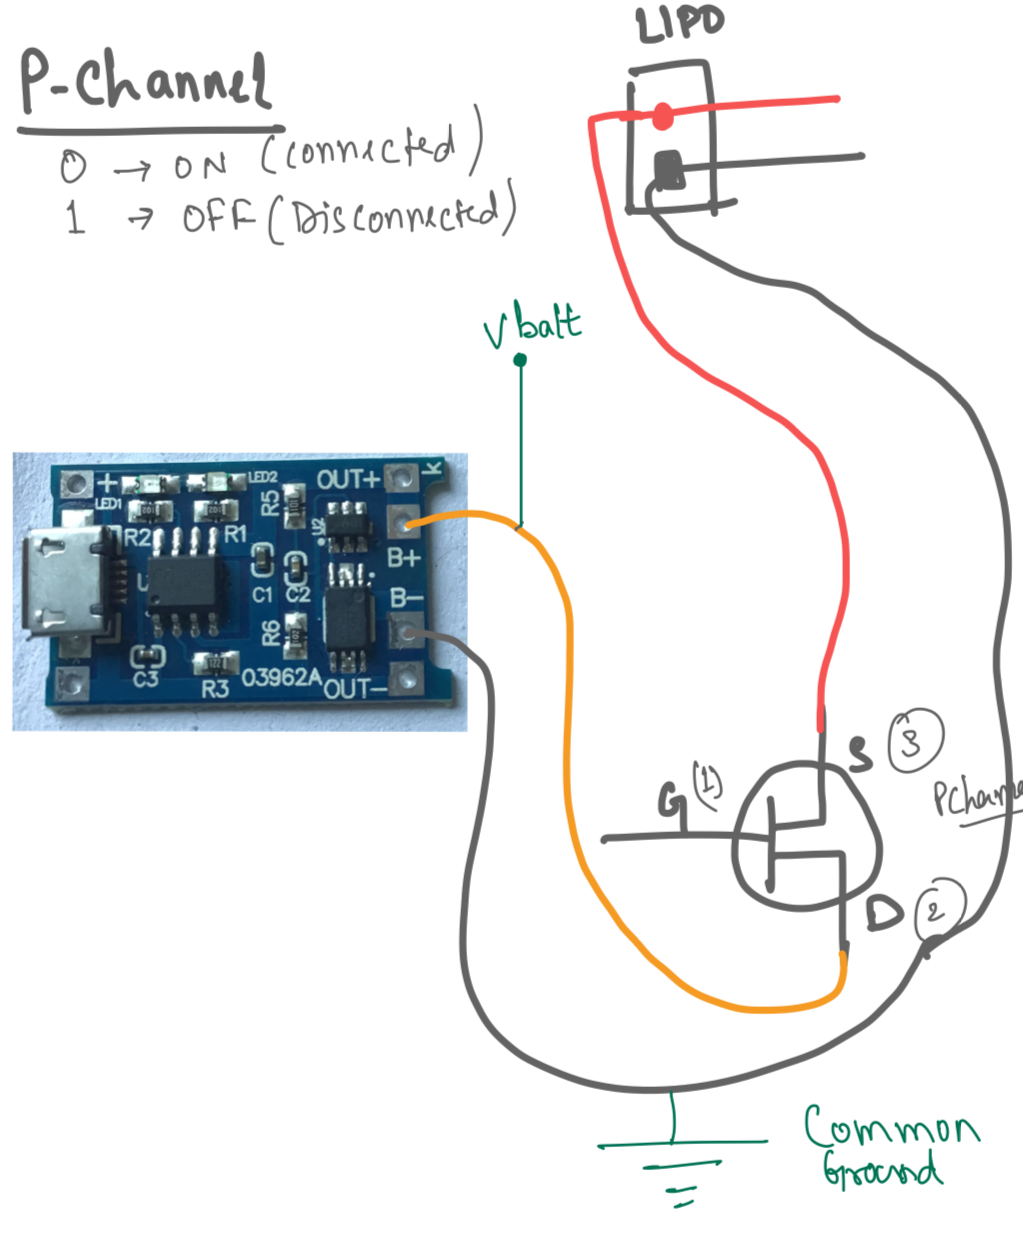 LIPO
P-Channel
0 → ON (Connected)
1 → OFF (Disconnected)
Vbatt
+
LED1
LED2
OUT+
K
R2
R1
R5
U2
B+
C1
C2
B-
R6
C3
R3
03962A
OUT-
S 3
G (1)
D 2
Common
Ground